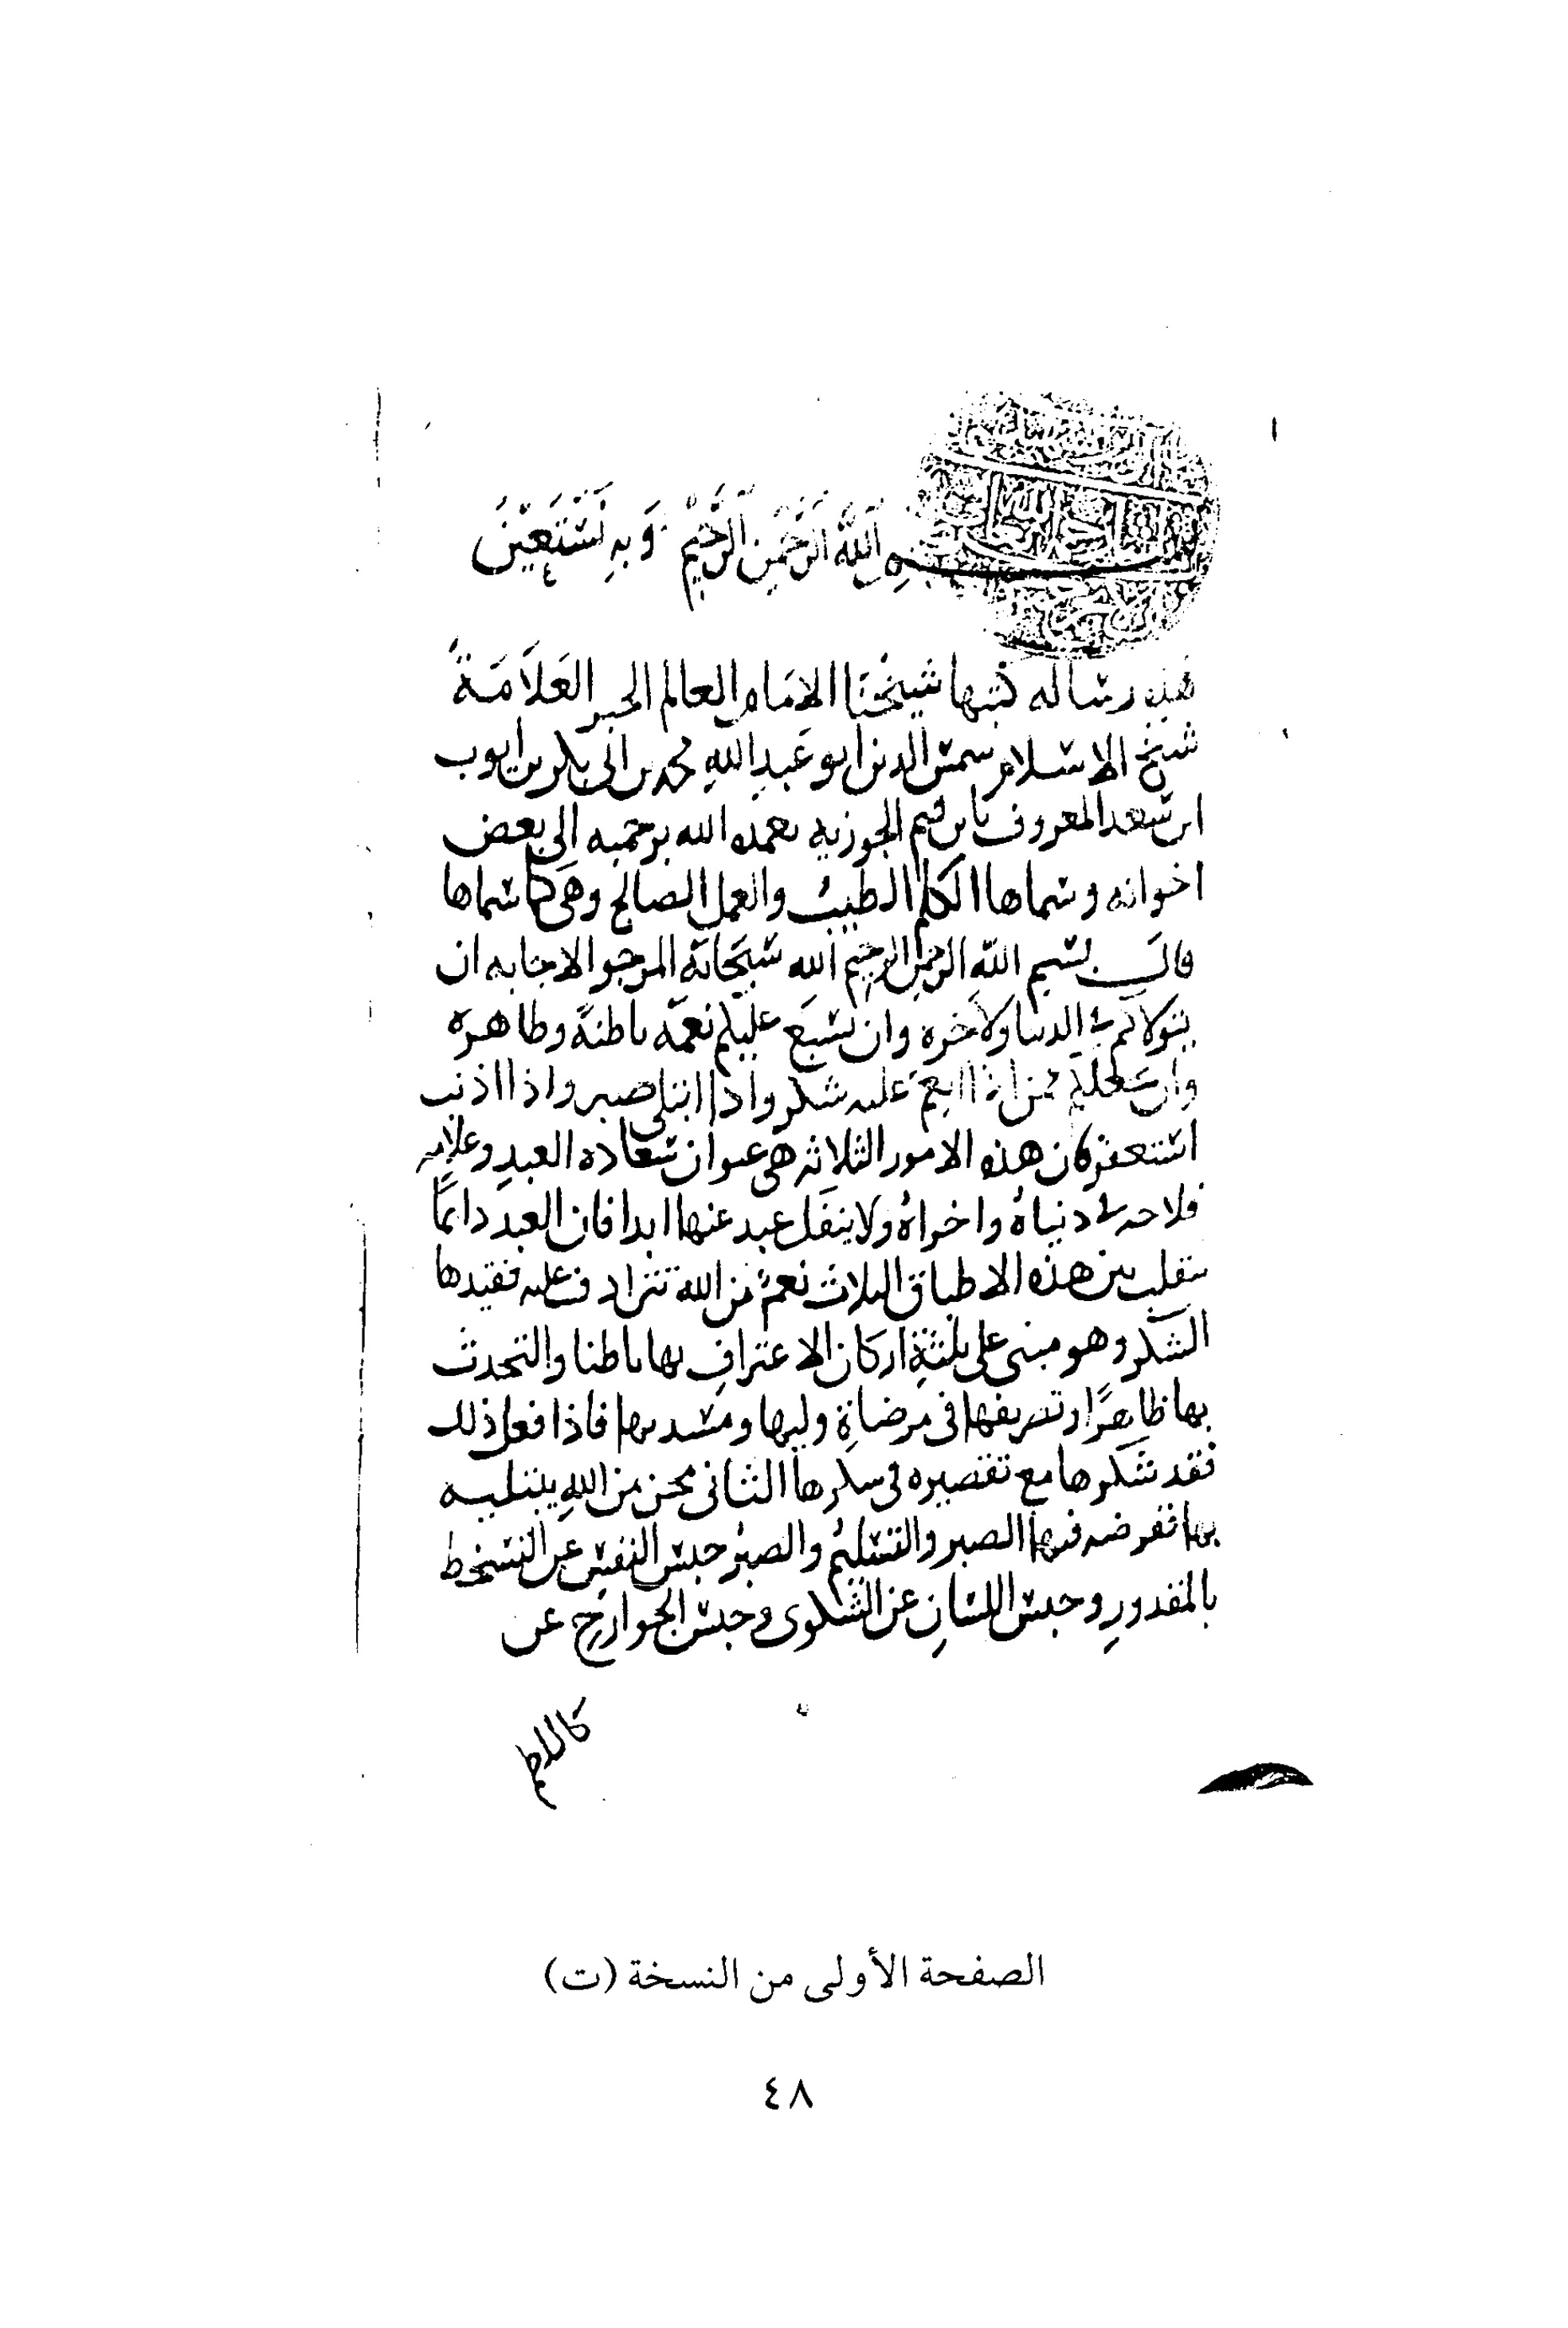 الله الرحمن الرحيم وبه نستعين
هذه رساله كتبها شيخنا الامام العالم الحبر العلامة
شيخ الاسلام شمس الدين ابو عبد الله محمد بن ابى بكر بن ايوب
ابن سعد المعروف بابن قيم الجوزيه تغمده الله برحمته الى بعض
اخوانه وسماها الكلم الطيب والعمل الصالح وهى كما سماها
قال بسم الله الرحمن الرحيم الله سبحانه المرجو الاجابه ان
يتولاكم في الدنيا والاخره وان يسبغ عليكم نعمه باطنة وظاهره
وان يجعلكم ممن اذا انعم عليه شكر واذا ابتلى صبر واذا اذنب
استغفر فان هذه الامور الثلاثه هى عنوان سعاده العبد وعلامه
فلاحه في دنياه واخراه ولا ينفك عبد عنها ابدا فان العبد دائما
يتقلب بين هذه الاطباق الثلاث نعم من الله تترادف عليه فقيدها
الشكر وهو مبنى على ثلثة اركان الاعتراف بها باطنا والتحدث
بها ظاهرا وتصريفها فى مرضاة وليها ومسديها فاذا فعل ذلك
فقد شكرها مع تقصيره فى شكرها الثانى محن من الله يبتليه
بها ففرضه فيها الصبر والتسليم والصبر حبس النفس عن التسخط
بالمقدور وحبس اللسان عن الشكوى وحبس الجوارح عن
كاللطم
الصفحة الأولى من النسخة (ت)
٤٨